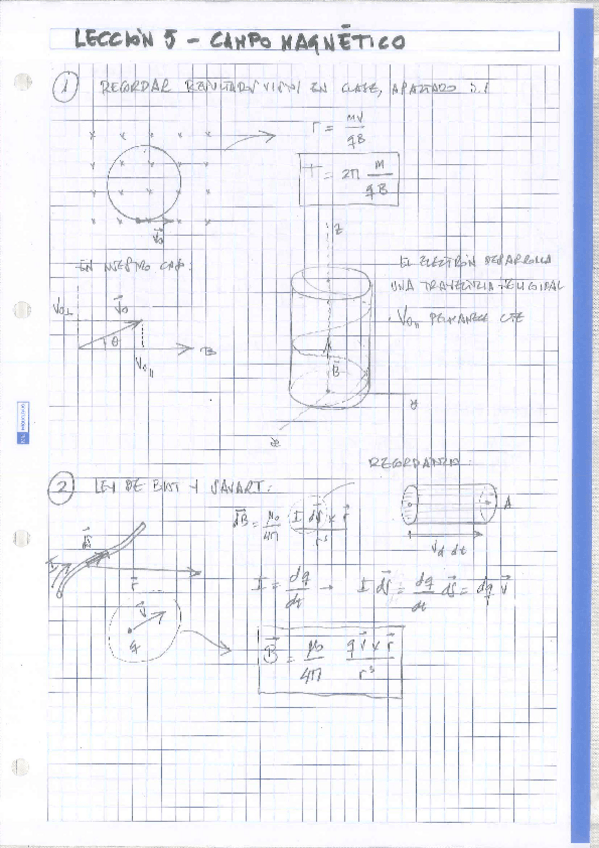 LECCIÓN 5 - CAMPO MAGNÉTICO
1 RECORDAR RESULTADO VISTO EN CLASE, APARTADO 5.1
r = mv / qB
T = 2π m / qB
V₀
z
EN NUESTRO CASO:
EL ELECTRÓN DESARROLLA
UNA TRAYECTORIA HELICOIDAL
V₀∥ PERMANECE CTE
V₀⊥ V₀
θ B
V₀∥
B
y
x
RECORDANDO:
2 LEY DE BIOT Y SAVART:
dB = μ₀ / 4π I dS x r / r³
A
Vd dt
dS
r
I = dq / dt → I dS = dq / dt dS = dq V
V
q
B = μ₀ / 4π q V x r / r³